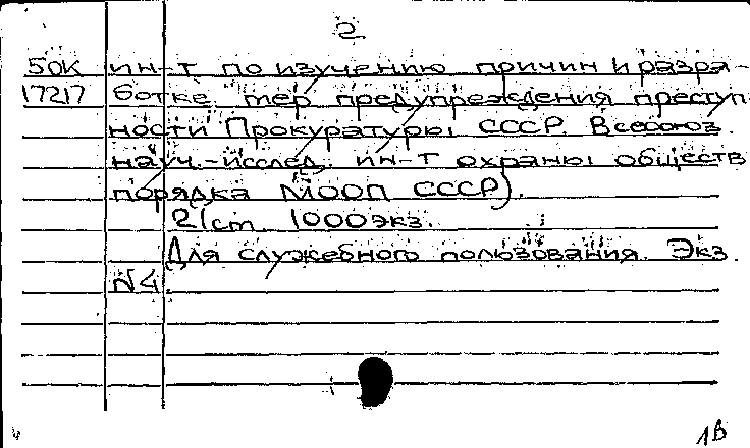 2
50К ин-т по изучению причин и разра-
17217 ботке мер предупреждения преступ
ности Прокуратуры СССР. Всесоюз.
науч.-исслед. ин-т охраны обществ
порядка МООП СССР).
21ст. 1000экз.
Для служебного пользования. Экз.
№4.
1В